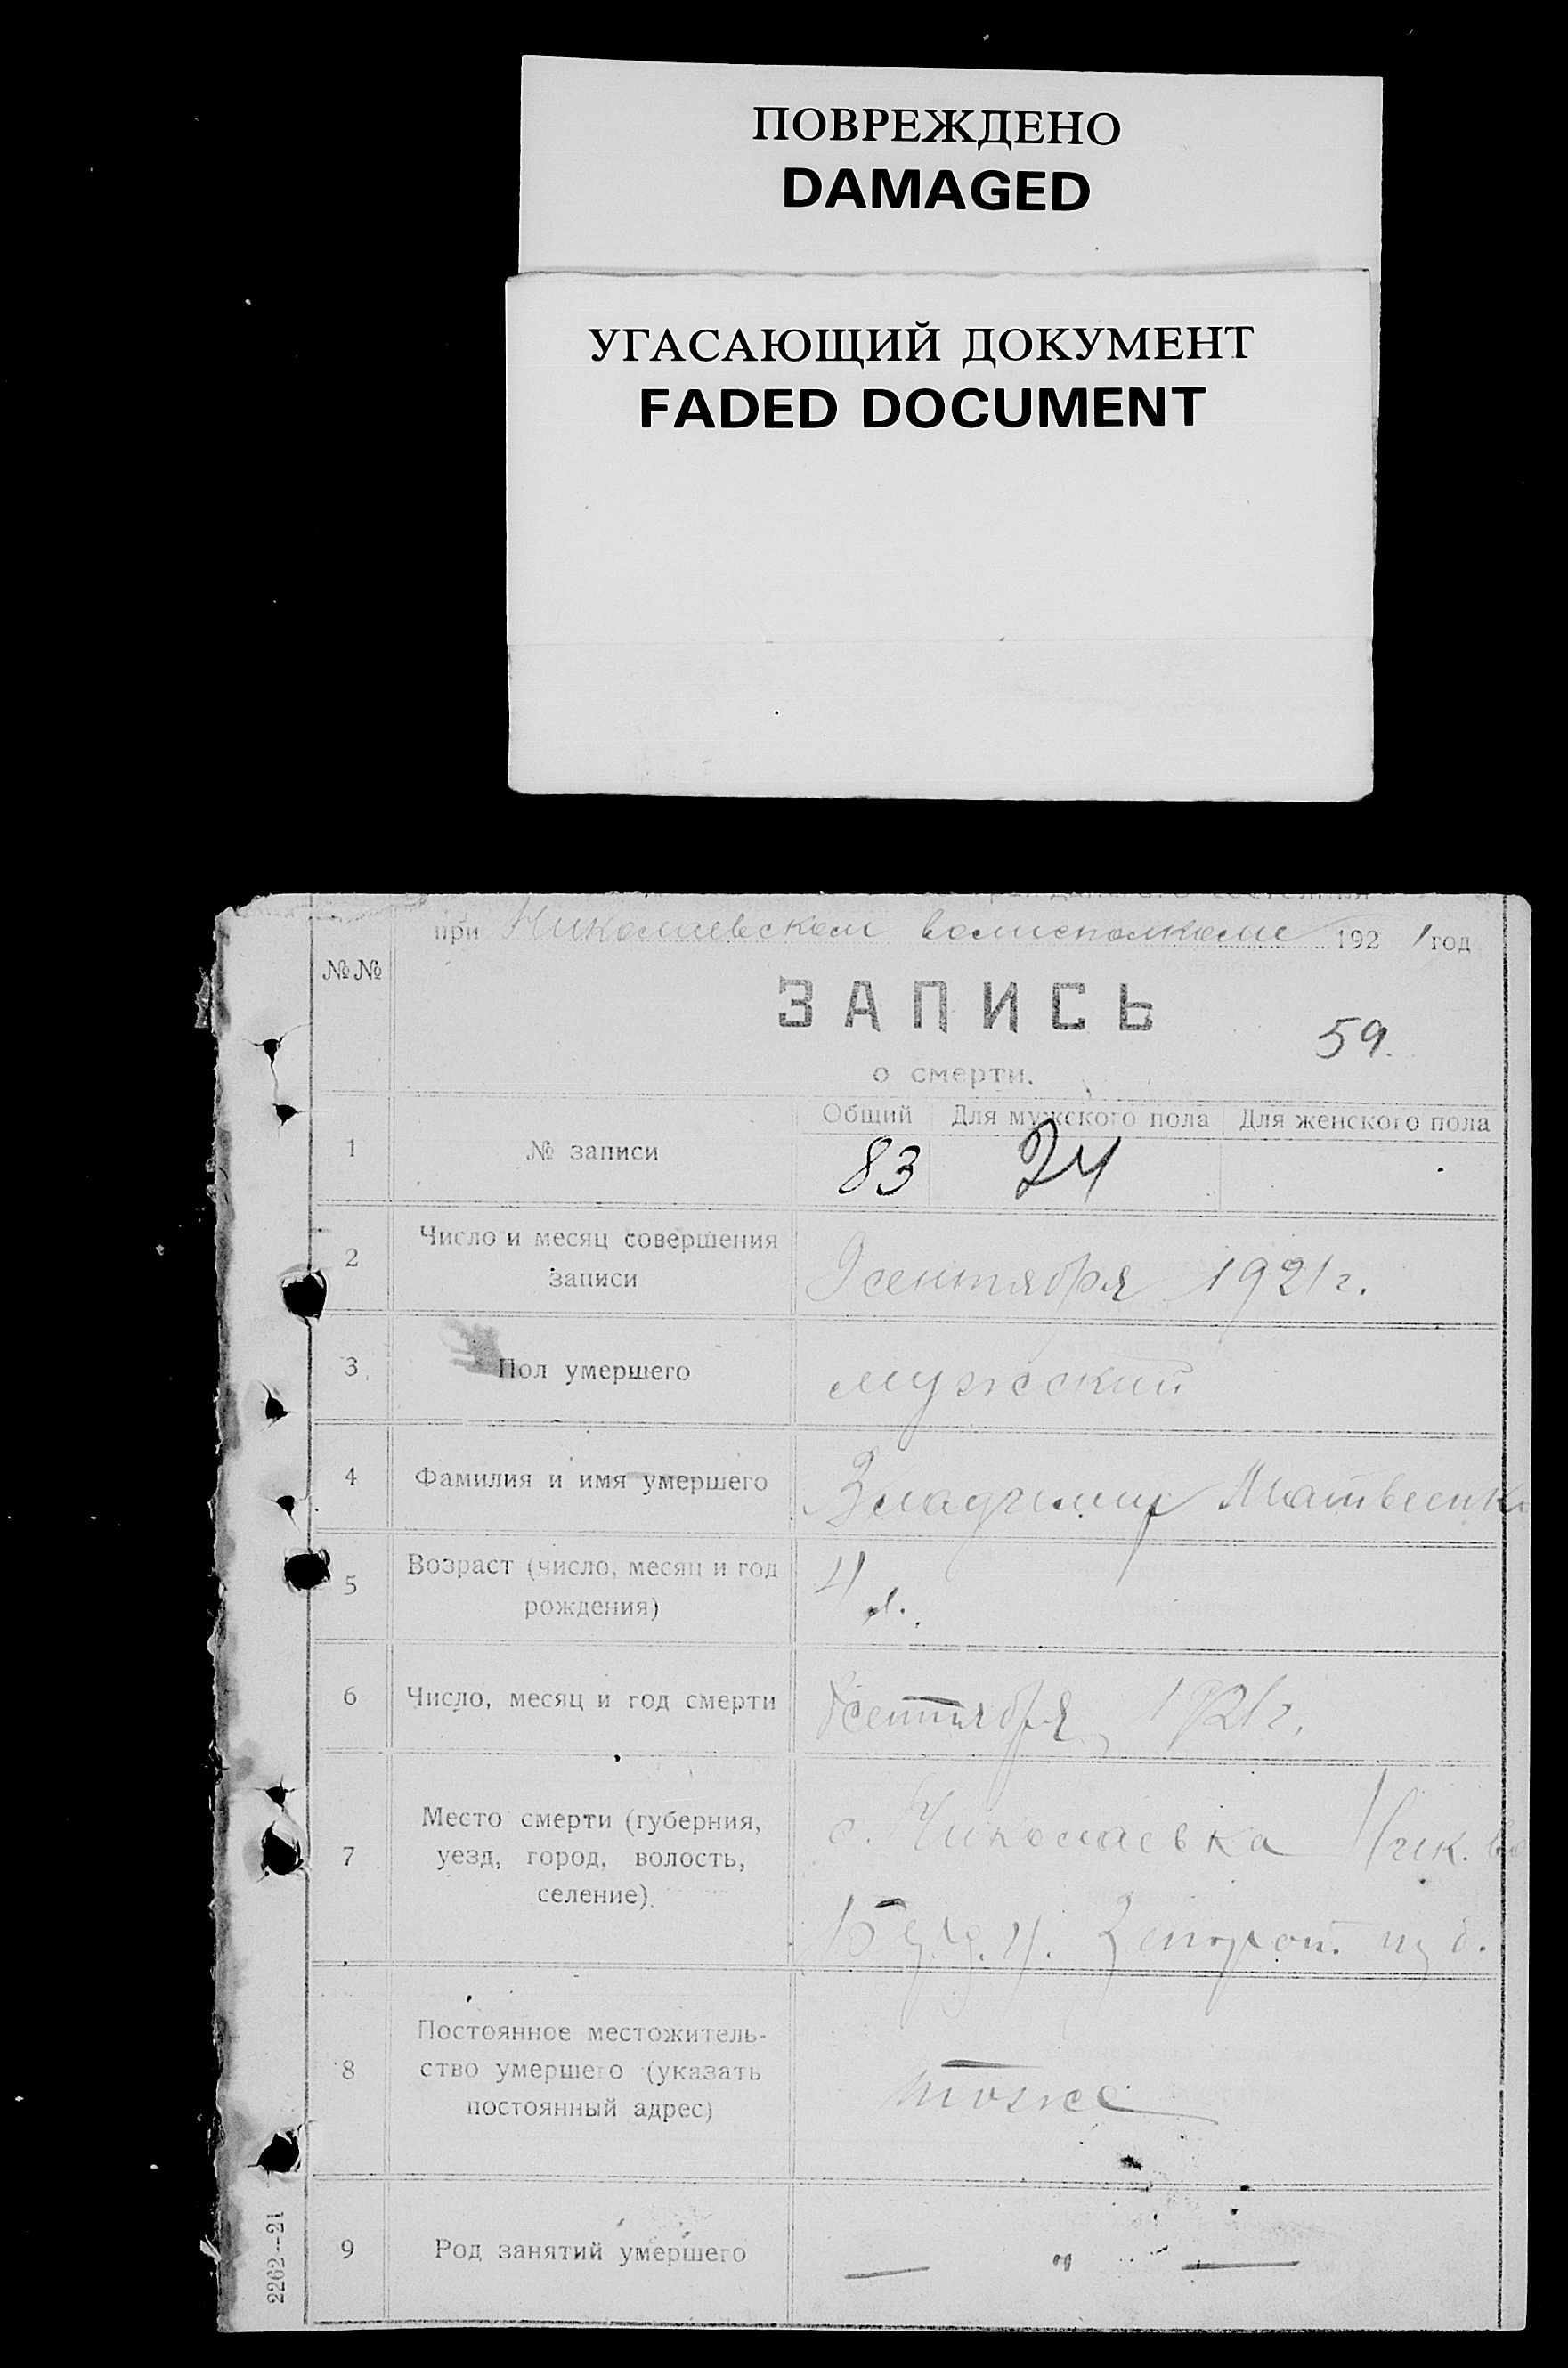 ПОВРЕЖДЕНО
DAMAGED
УГАСАЮЩИЙ ДОКУМЕНТ
FADED DOCUMENT
при Николаевском волисполкоме 1921 год
№№
ЗАПИСЬ
59.
о смерти.
Общий Для мужского пола Для женского пола
1 № записи 83 24
2 Число и месяц совершения
записи
9 сентября 1921 г.
3 Пол умершего мужской
4 Фамилия и имя умершего Владимир Матвеенко
5 Возраст (число, месяц и год
рождения)
4 л.
6 Число, месяц и год смерти 8 сентября 1921 г.
7 Место смерти (губерния,
уезд, город, волость,
селение)
с. Николаевка Ник. во
губ.
8 Постоянное местожитель-
ство умершего (указать
постоянный адрес)
тоже
9 Род занятий умершего — " —
2262—21